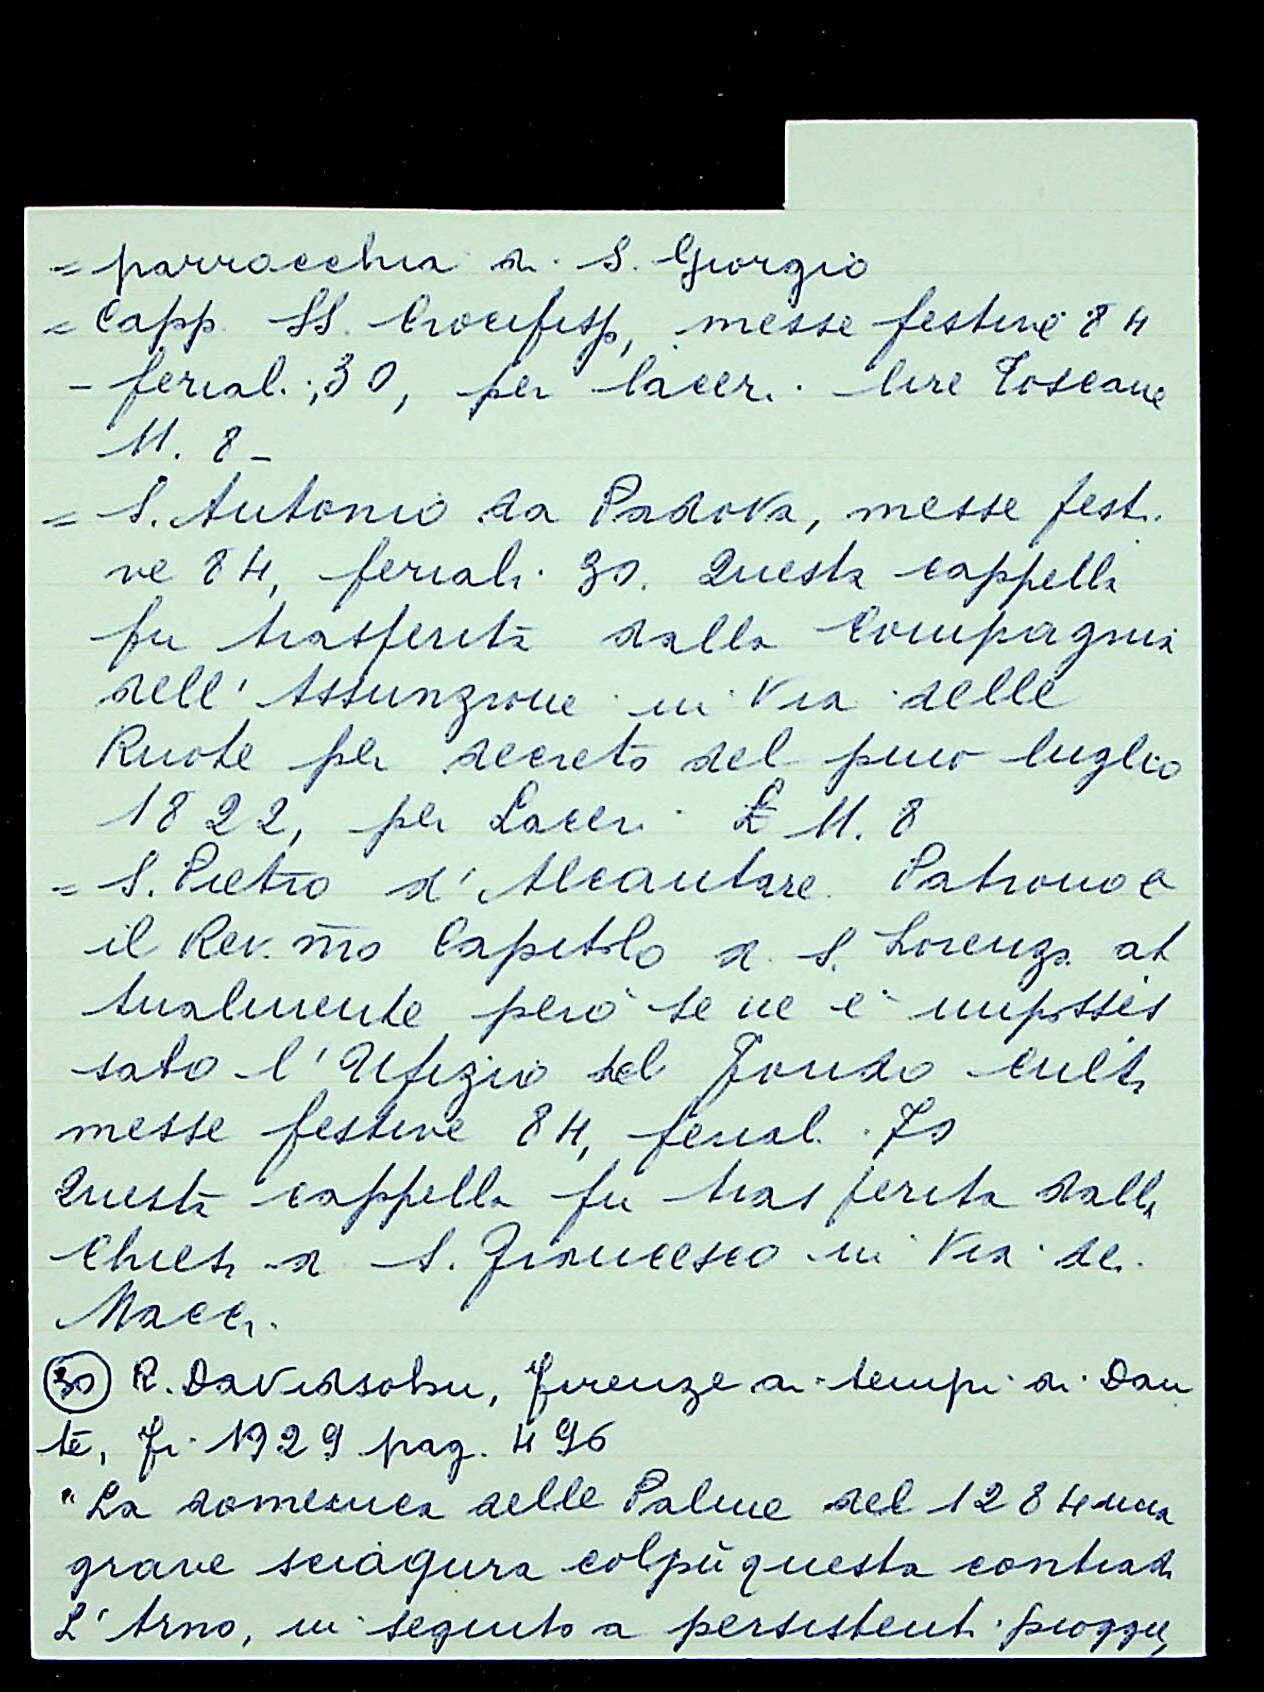 = parrocchia di S. Giorgio
= Capp. SS. Crocifisso, messe festive 84
- feriali 30, per laceri lire Toscane
11. 8 -
= S. Antonio da Padova, messe festi
ve 84, feriali 30. Questa cappella
fu trasferita dalla Compagnia
dell' Assunzione in Via delle
Ruote per decreto del primo luglio
1822, per Laceri £ 11. 8
= S. Pietro d' Alcantare. Patrono è
il Rev. mo Capitolo di S. Lorenzo at
tualmente però se ne è imposses
sato l' Ufizio del Fondo culti
messe festive 84, feriali 30
Questa cappella fu trasferita dalla
Chiesa di S. Francesco in Via dei
Macci.
(30) R. Davidsohn, Firenze ai tempi di Dan
te, Fi. 1929 pag. 496
"La domenica delle Palme del 1284 una
grave sciagura colpì questa contrada
L' Arno, in seguito a persistenti piogge,